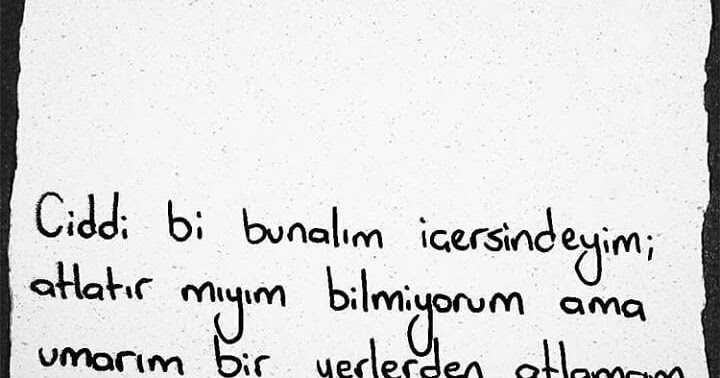 Ciddi bi bunalım icersindeyim;
atlatır mıyım bilmiyorum ama
umarım bir yerlerden atlamam